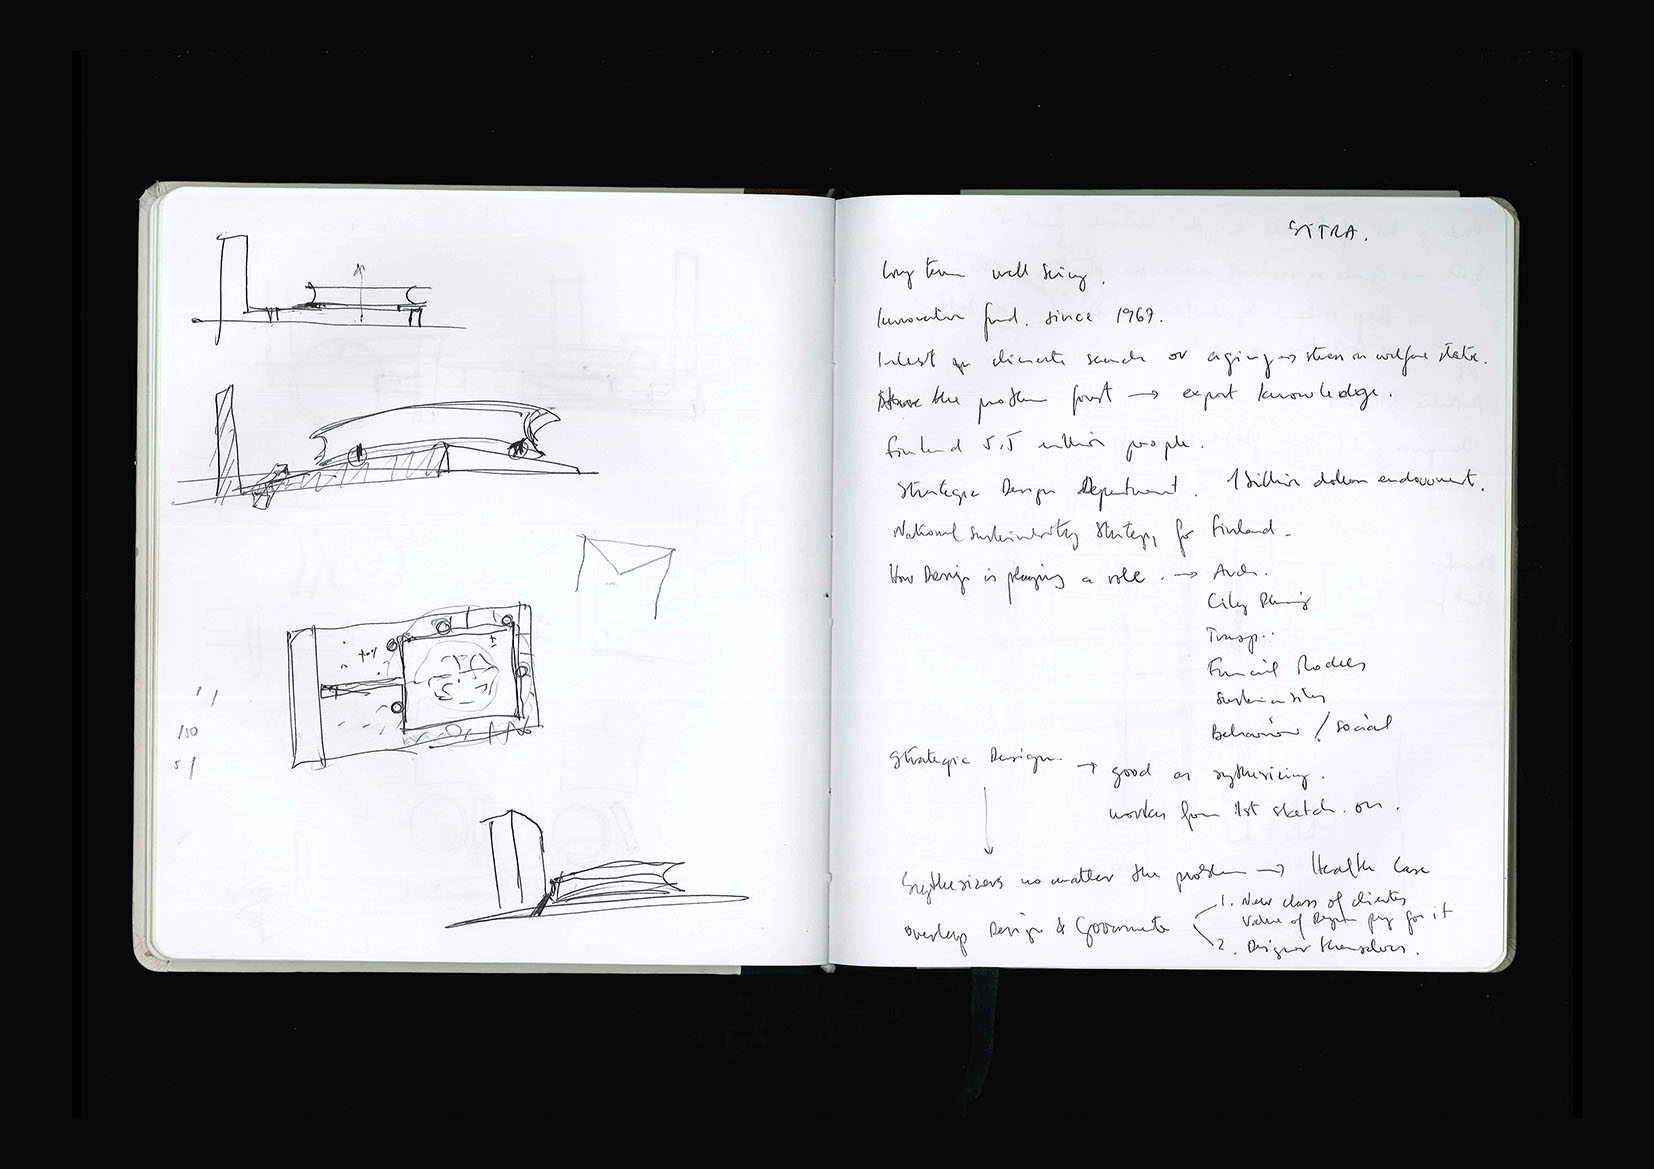 SITRA.
long term well being.
Innovation fund. since 1967.
Interest in climate search or aging → stress on welfare state.
the problem first → expert knowledge.
Finland 5.5 million people.
Strategic Design Department. 1 billion dollars endowment.
National Sustainability Strategy for Finland.
How Design is playing a role. → Arch.
City Planning
Transp..
Financial Models
Sustainability
Behaviour / social
Strategic Design. → good as sythesizing.
works from 1st sketch. on.
Sythesizers no matter the problem → Health Care
overlap Design & Governments
1. New class of clients
Value of Design pay for it
2. Designer themselves.
/50
5 /